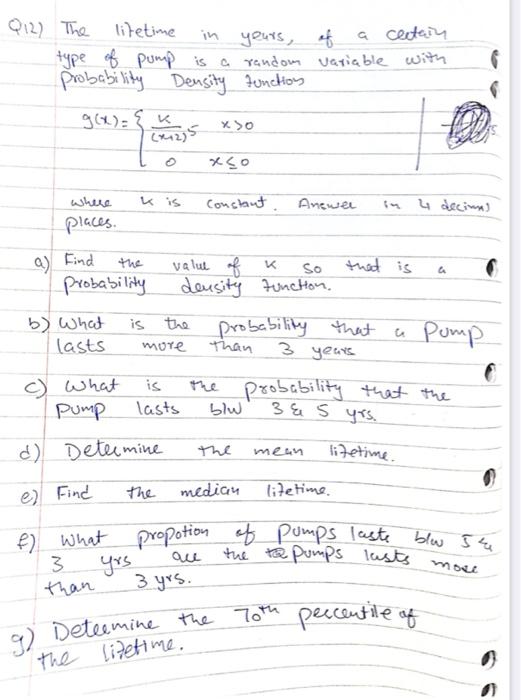 Q12) The lifetime in years, of a certain
type of pump is a random variable with
probability Density function
g(x) = { k/(x+2)^5 x>0
0 x≤0
where k is constant. Answer in 4 decimal
places.
a) Find the value of k so that is a
probability density function.
b) What is the probability that a pump
lasts more than 3 years
c) What is the probability that the
pump lasts b/w 3 & 5 yrs.
d) Determine the mean lifetime.
e) Find the median lifetime.
f) What propotion of pumps lasts b/w 5 &
3 yrs are the pumps lasts more
than 3 yrs.
g) Determine the 70th percentile of
the lifetime.